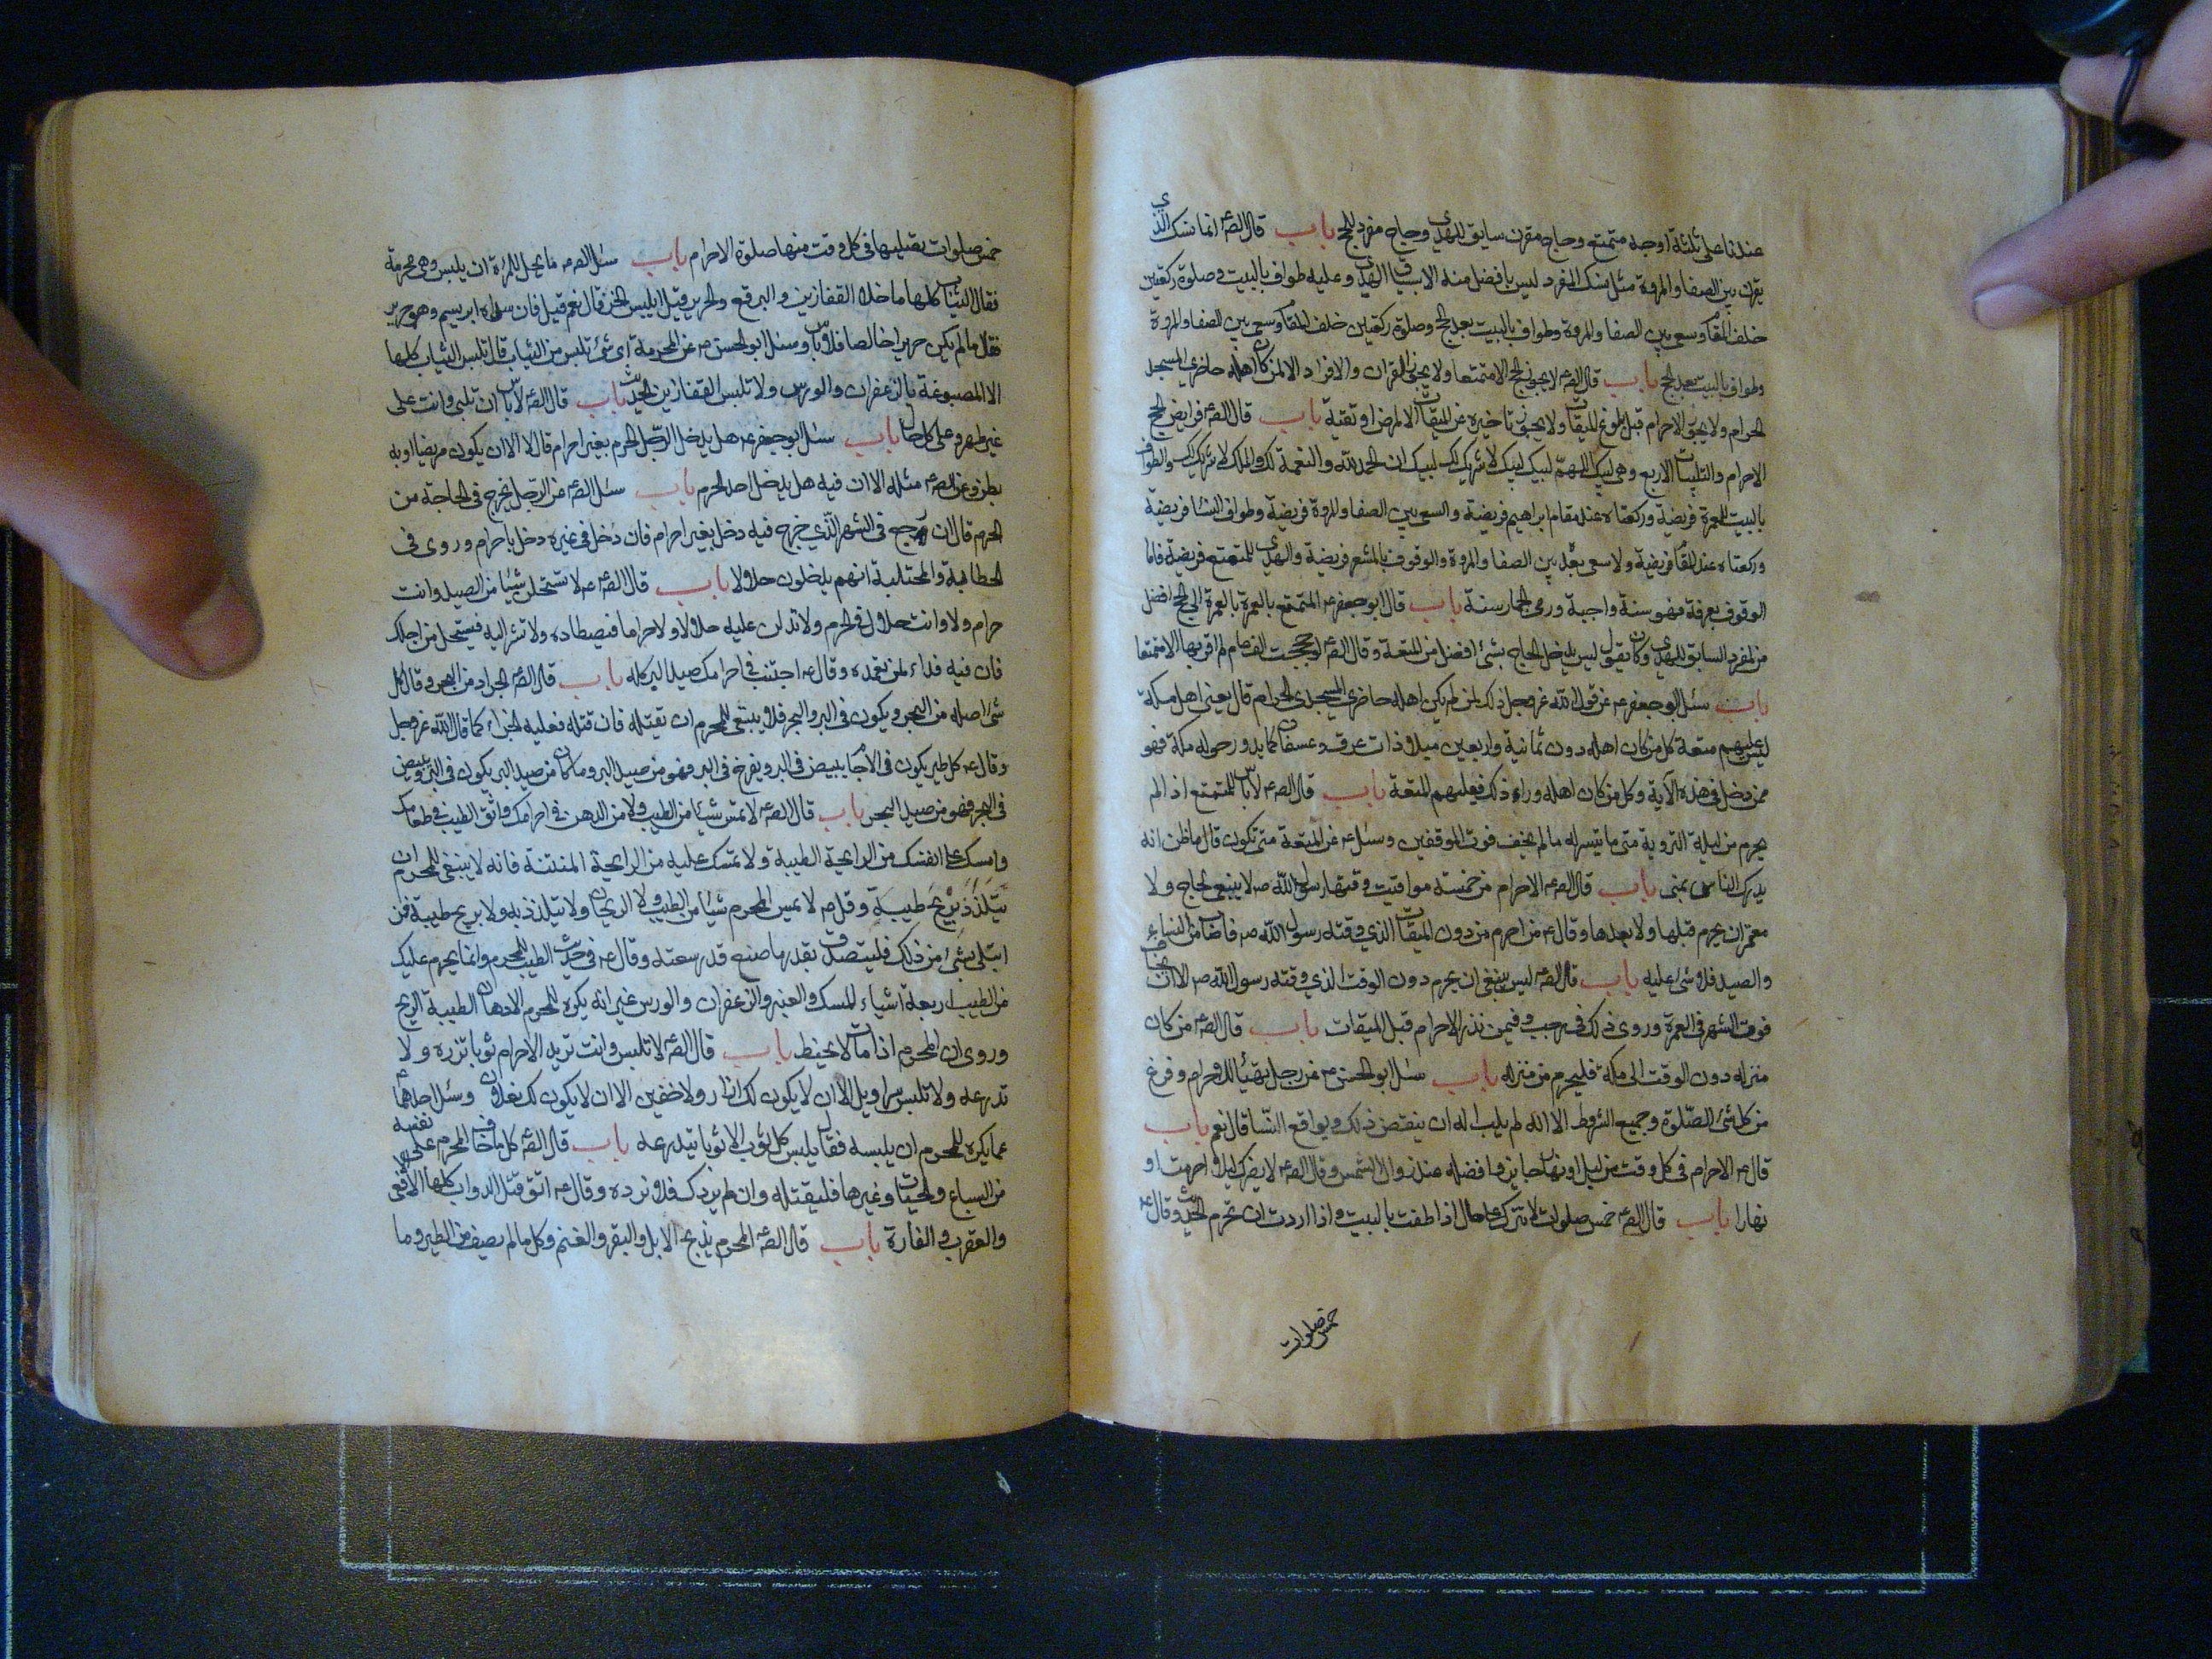 عندنا على ثلثة اوجه متمتع وحاج مقرن سايق للهدي وحاج مفرد للحج باب قال الصه انما نسك الذي
يقرن بين الصفا والمروة مثل نسك المفرد ليس بافضل منه الا بسياق الهدي وعليه طواف بالبيت وصلوة ركعتين
خلف المقام وسعي بين الصفا والمروة وطواف بالبيت بعد الحج وصلوة ركعتين خلف المقام وسعي بين الصفا والمروة
وطواف بالبيت بعد الحج باب قال الصه لا يجوز الحج الا متمتعا ولا يجوز القران والافراد الا لمن كان اهله حاضري المسجد
الحرام ولا يجوز الاحرام قبل بلوغ الميقات ولا يجوز تاخيره عن الميقات الا لمرض او تقية باب قال الصه فرايض الحج
الاحرام والتلبيات الاربع وهي لبيك اللهم لبيك لبيك لا شريك لك لبيك ان الحمد لله والنعمة لك والملك لا شريك لك والطواف
بالبيت للعمرة فريضة وركعتاه عند مقام ابراهيم فريضة والسعي بين الصفا والمروة فريضة وطواف النسا فريضة
وركعتاه عند المقام فريضة ولا سعي بعده بين الصفا والمروة والوقوف بالمشعر فريضة والهدي للمتمتع فريضة فاما
الوقوف بعرفة فهو سنة واجبة ورمي الجمار سنة باب قال ابو جعفر عه المتمتع بالعمرة بالعمرة الى الحج افضل
من المفرد السايق للهدي وكان يقول ليس يدخل الحاج بشئ افضل من المتعة وقال الصه لو حججت الف عام لم اقربها الا متمتعا
باب سئل ابو جعفر عه عن قول الله عز وجل ذلك لمن لم يكن اهله حاضري المسجد الحرام قال يعني اهل مكة
ليس عليهم متعة كل من كان اهله دون ثمانية واربعين ميلا ذات عرق وعسفان كما يدور حول مكة فهو
ممن دخل في هذه الآية وكل من كان اهله وراء ذلك فعليهم المتعة باب قال الصه لا باس للمتمتع اذا لم
يحرم من ليلة التروية متى ما تيسر له ما لم يخف فوت الموقفين وسئل عه عن المتعة متى تكون قال ما ظن انه
يدرك الناس بمنى باب قال الصه الاحرام من خمسة مواقيت وقتها رسول الله صه لا ينبغي لحاج ولا
معتمر ان يحرم قبلها ولا بعدها وقال عه من احرم من دون الميقات الذي وقته رسول الله صه فاصاب من النساء
والصيد فلا شئ عليه باب قال الصه ليس ينبغي ان يحرم دون الوقت الذي وقته رسول الله صه الا ان يخاف
فوت الشهر في العمرة وروي ذلك في رجب وفيمن نذر الاحرام قبل الميقات باب قال الصه من كان
منزله دون الوقت الى مكة فليحرم من منزله باب سئل ابو الحسن عه عن رجل تهيأ للاحرام وفرغ
من كل شئ الصلوة وجميع الشروط الا انه لم يلب اله ان ينقض ذلك ويواقع النسا قال نعم باب
قال عه الاحرام في كل وقت من ليل او نهار جايز وافضله عند زوال الشمس وقال الصه لا يضرك ليلا احرمت او
نهارا باب قال الصه خمس صلوات لا تترك على حال اذا طفت بالبيت واذا اردت ان تحرم الحديث وقال عه
خمس صلوات
خمس صلوات تصليها في كل وقت منها صلوة الاحرام باب سئل الصه ما يحل للمراة ان يلبس وهي محرمة
فقال الثياب كلها ما خلا القفازين والبرقع والحرير قيل ايلبس الخز قال نعم قيل فان سداه ابريسم وهو حرير
فقال ما لم يكن حريرا خالصا فلا باس وسئل ابو الحسن عه عن المحرمة اي شئ تلبس من الثياب قال تلبس الثياب كلها
الا المصبوغة بالزعفران والورس ولا تلبس القفازين الحديث باب قال الصه لا باس ان تلبي وانت على
غير طهر وعلى كل حال باب سئل ابو جعفر عه هل يدخل الرجل الحرم بغير احرام قال لا الا ان يكون مريضا او به
بطن وعن الصه مثله الا ان فيه هل يدخل احد الحرم باب سئل الصه عن الرجل يخرج في الحاجة من
الحرم قال ان رجع في الشهر الذي خرج فيه دخل بغير احرام فان دخل في غيره دخل باحرام وروي في
الحطابة والمجتلبة انهم يدخلون حلالا باب قال الصه عه لا تستحلن شيئا من الصيد وانت
حرام ولا وانت حلال في الحرم ولا تدلن عليه حلالا ولا حراما فيصطاده ولا تشر اليه فيستحل من اجلك
فان فيه فداء لمن تعمده وقال عه اجتنب في احرامك صيد البر كله باب قال الصه الجراد من البحر وقال كل
شئ اصله من البحر ويكون في البر والبحر فلا ينبغي للمحرم ان يقتله فان قتله فعليه الجزاء كما قال الله عز وجل
وقال عه كل طير يكون في الآجام يبيض في البر ويفرخ في البر فهو من صيد البر وما كان من صيد البر يكون في البر ويبيض
في البحر فهو من صيد البحر باب قال الصه لا تمس شيئا من الطيب ولا من الدهن في احرامك واتق الطيب في طعامك
وامسك على انفسك من الرايحة الطيبة ولا تمسك عليه من الرايحة المنتنة فانه لا ينبغي للمحرم ان
يتلذذ بريح طيبة وقال عه لا يمس المحرم شيئا من الطيب ولا الريحان ولا يتلذذ به ولا بريح طيبة فمن
ابتلي بشئ من ذلك فليتصدق بقدر ما صنع قدر سعته وقال عه في حديث الطيب للمحرم وانما يحرم عليك
من الطيب اربعة اشياء المسك والعنبر والزعفران والورس غير انه يكره للمحرم الادهان الطيبة الريح
وروي ان المحرم اذا مات لا يحنط باب قال الصه لا تلبس وانت تريد الاحرام ثوبا تزره ولا
تدرعه ولا تلبس سراويل الا ان لا يكون لك ازار ولا خفين الا ان لا يكون لك نعلان وسئل احدهما عه
عما يكره للمحرم ان يلبسه فقال يلبس كل ثوب الا ثوبا يتدرعه باب قال الصه كل ما خاف المحرم على نفسه
من السباع والحيات وغيرها فليقتله وان لم يردك فلا ترده وقال عه اتق قتل الدواب كلها الا الافعى
والعقرب والفارة باب قال الصه المحرم يذبح الابل والبقر والغنم وكل ما لم يصف من الطير وما